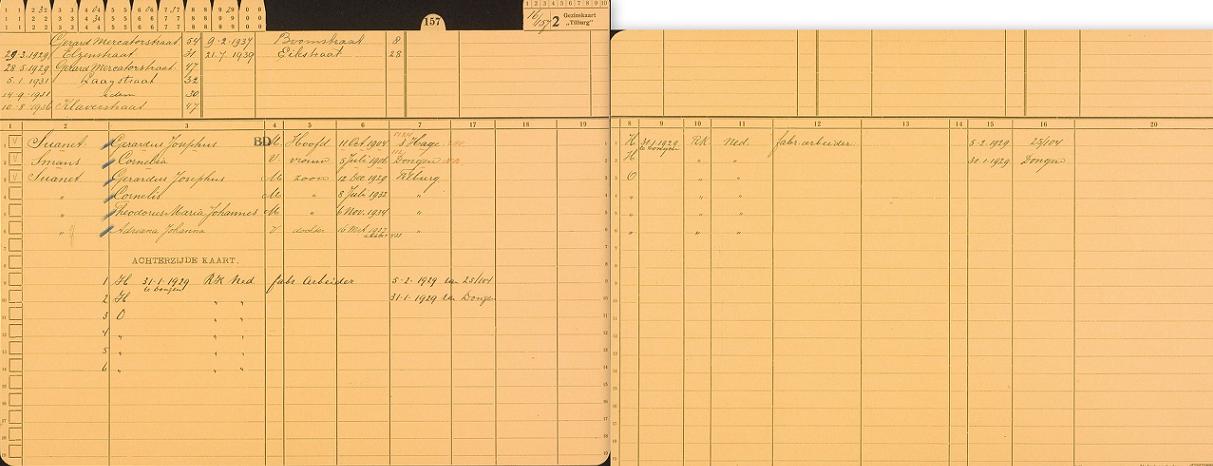 157
2 Gezinskaart
„Tilburg"
Gerard Mercatorstraat 54 9-2-1937 Boomstraat 8
29-3-1929 Elzenstraat 31 21-7-1939 Eikstraat 28
28-5-1929 Gerard Mercatorstraat 47
5-1-1931 Laagstraat 32
14-9-1931 idem 30
10-8-1936 Klaverstraat 47
1 2 3 4 5 6 7 17 18 19 8 9 10 11 12 13 14 15 16 20
1 V Suanet Gerardus Josephus BD M. Hoofd 11 Oct 1904 's Hage H 30-1-1929 RK Ned. fabr. arbeider 5-2-1929 25/104
te Dongen
2 V Smans Cornelia V. vrouw 5 Juli 1906 Dongen H „ „ 30-1-1929 Dongen
3 V Suanet Gerardus Josephus M. zoon 12 Dec 1929 Tilburg O „ „
4 „ Cornelis M. „ 8 Juli 1932 „ „ „ „
5 „ Theodorus Maria Johannes M „ 6 Nov. 1934 „ „ „ „
6 „ Adriana Johanna V dochter 16 Mrt 1937 „ „ „ „
ACHTERZIJDE KAART.
1 H 31-1-1929 RK Ned fabr. Arbeider 5-2-1929 van 25/104
te Dongen
2 H „ „ 31-1-1929 van Dongen
3 O „ „
4 „ „ „
5 „ „ „
6 „ „ „